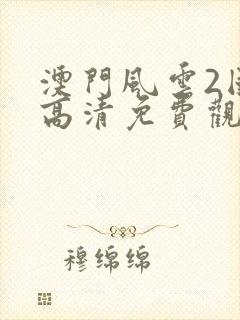 澳門風雲2
高清免費觀
穆绵绵